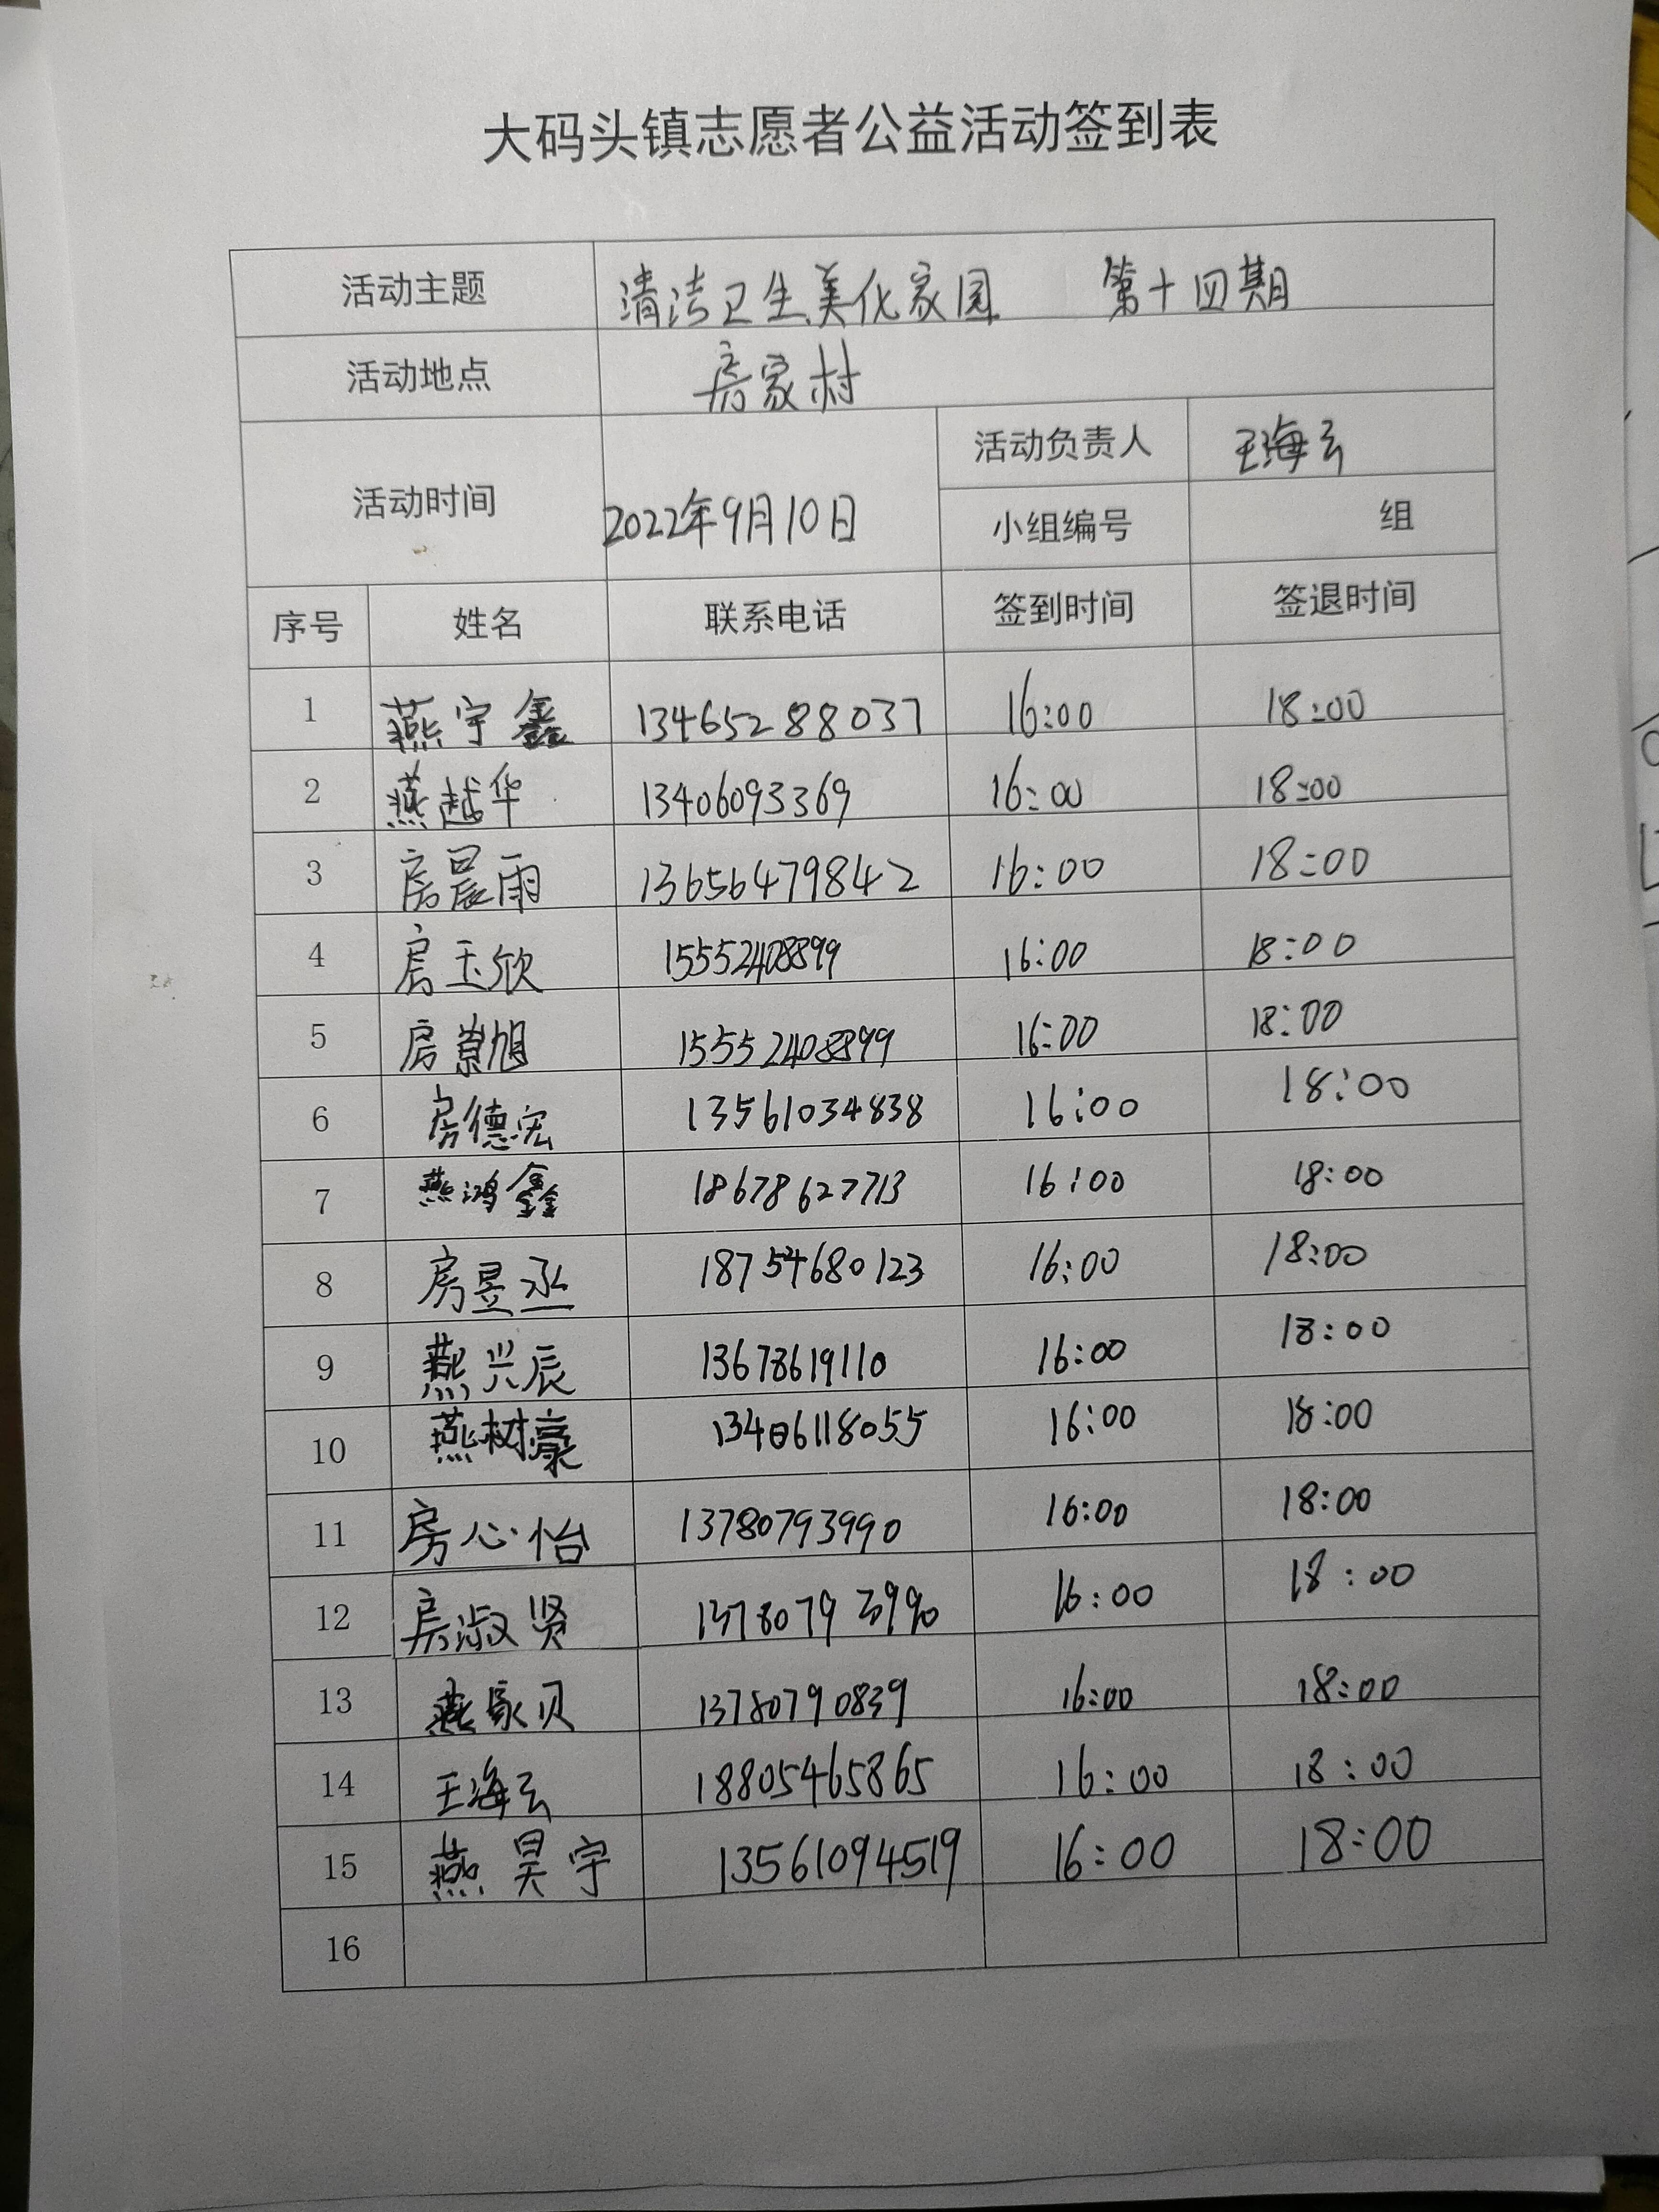 大码头镇志愿者公益活动签到表
活动主题 清洁卫生美化家园 第十四期
活动地点 房家村
活动时间 2022年9月10日 活动负责人 王海云
小组编号 组
序号 姓名 联系电话 签到时间 签退时间
1 燕宇鑫 13465288037 16:00 18:00
2 燕越华 13406093369 16:00 18:00
3 房晨雨 13656479842 16:00 18:00
4 房玉欣 15552408899 16:00 18:00
5 房景旭 15552408899 16:00 18:00
6 房德宏 13561034838 16:00 18:00
7 燕鸿鑫 18678627713 16:00 18:00
8 房昱丞 18754680123 16:00 18:00
9 燕兴辰 13678619110 16:00 18:00
10 燕树豪 13406118055 16:00 18:00
11 房心怡 13780793990 16:00 18:00
12 房淑贤 13780793990 16:00 18:00
13 燕家贝 13780790839 16:00 18:00
14 王海云 18805465865 16:00 18:00
15 燕昊宇 13561094519 16:00 18:00
16